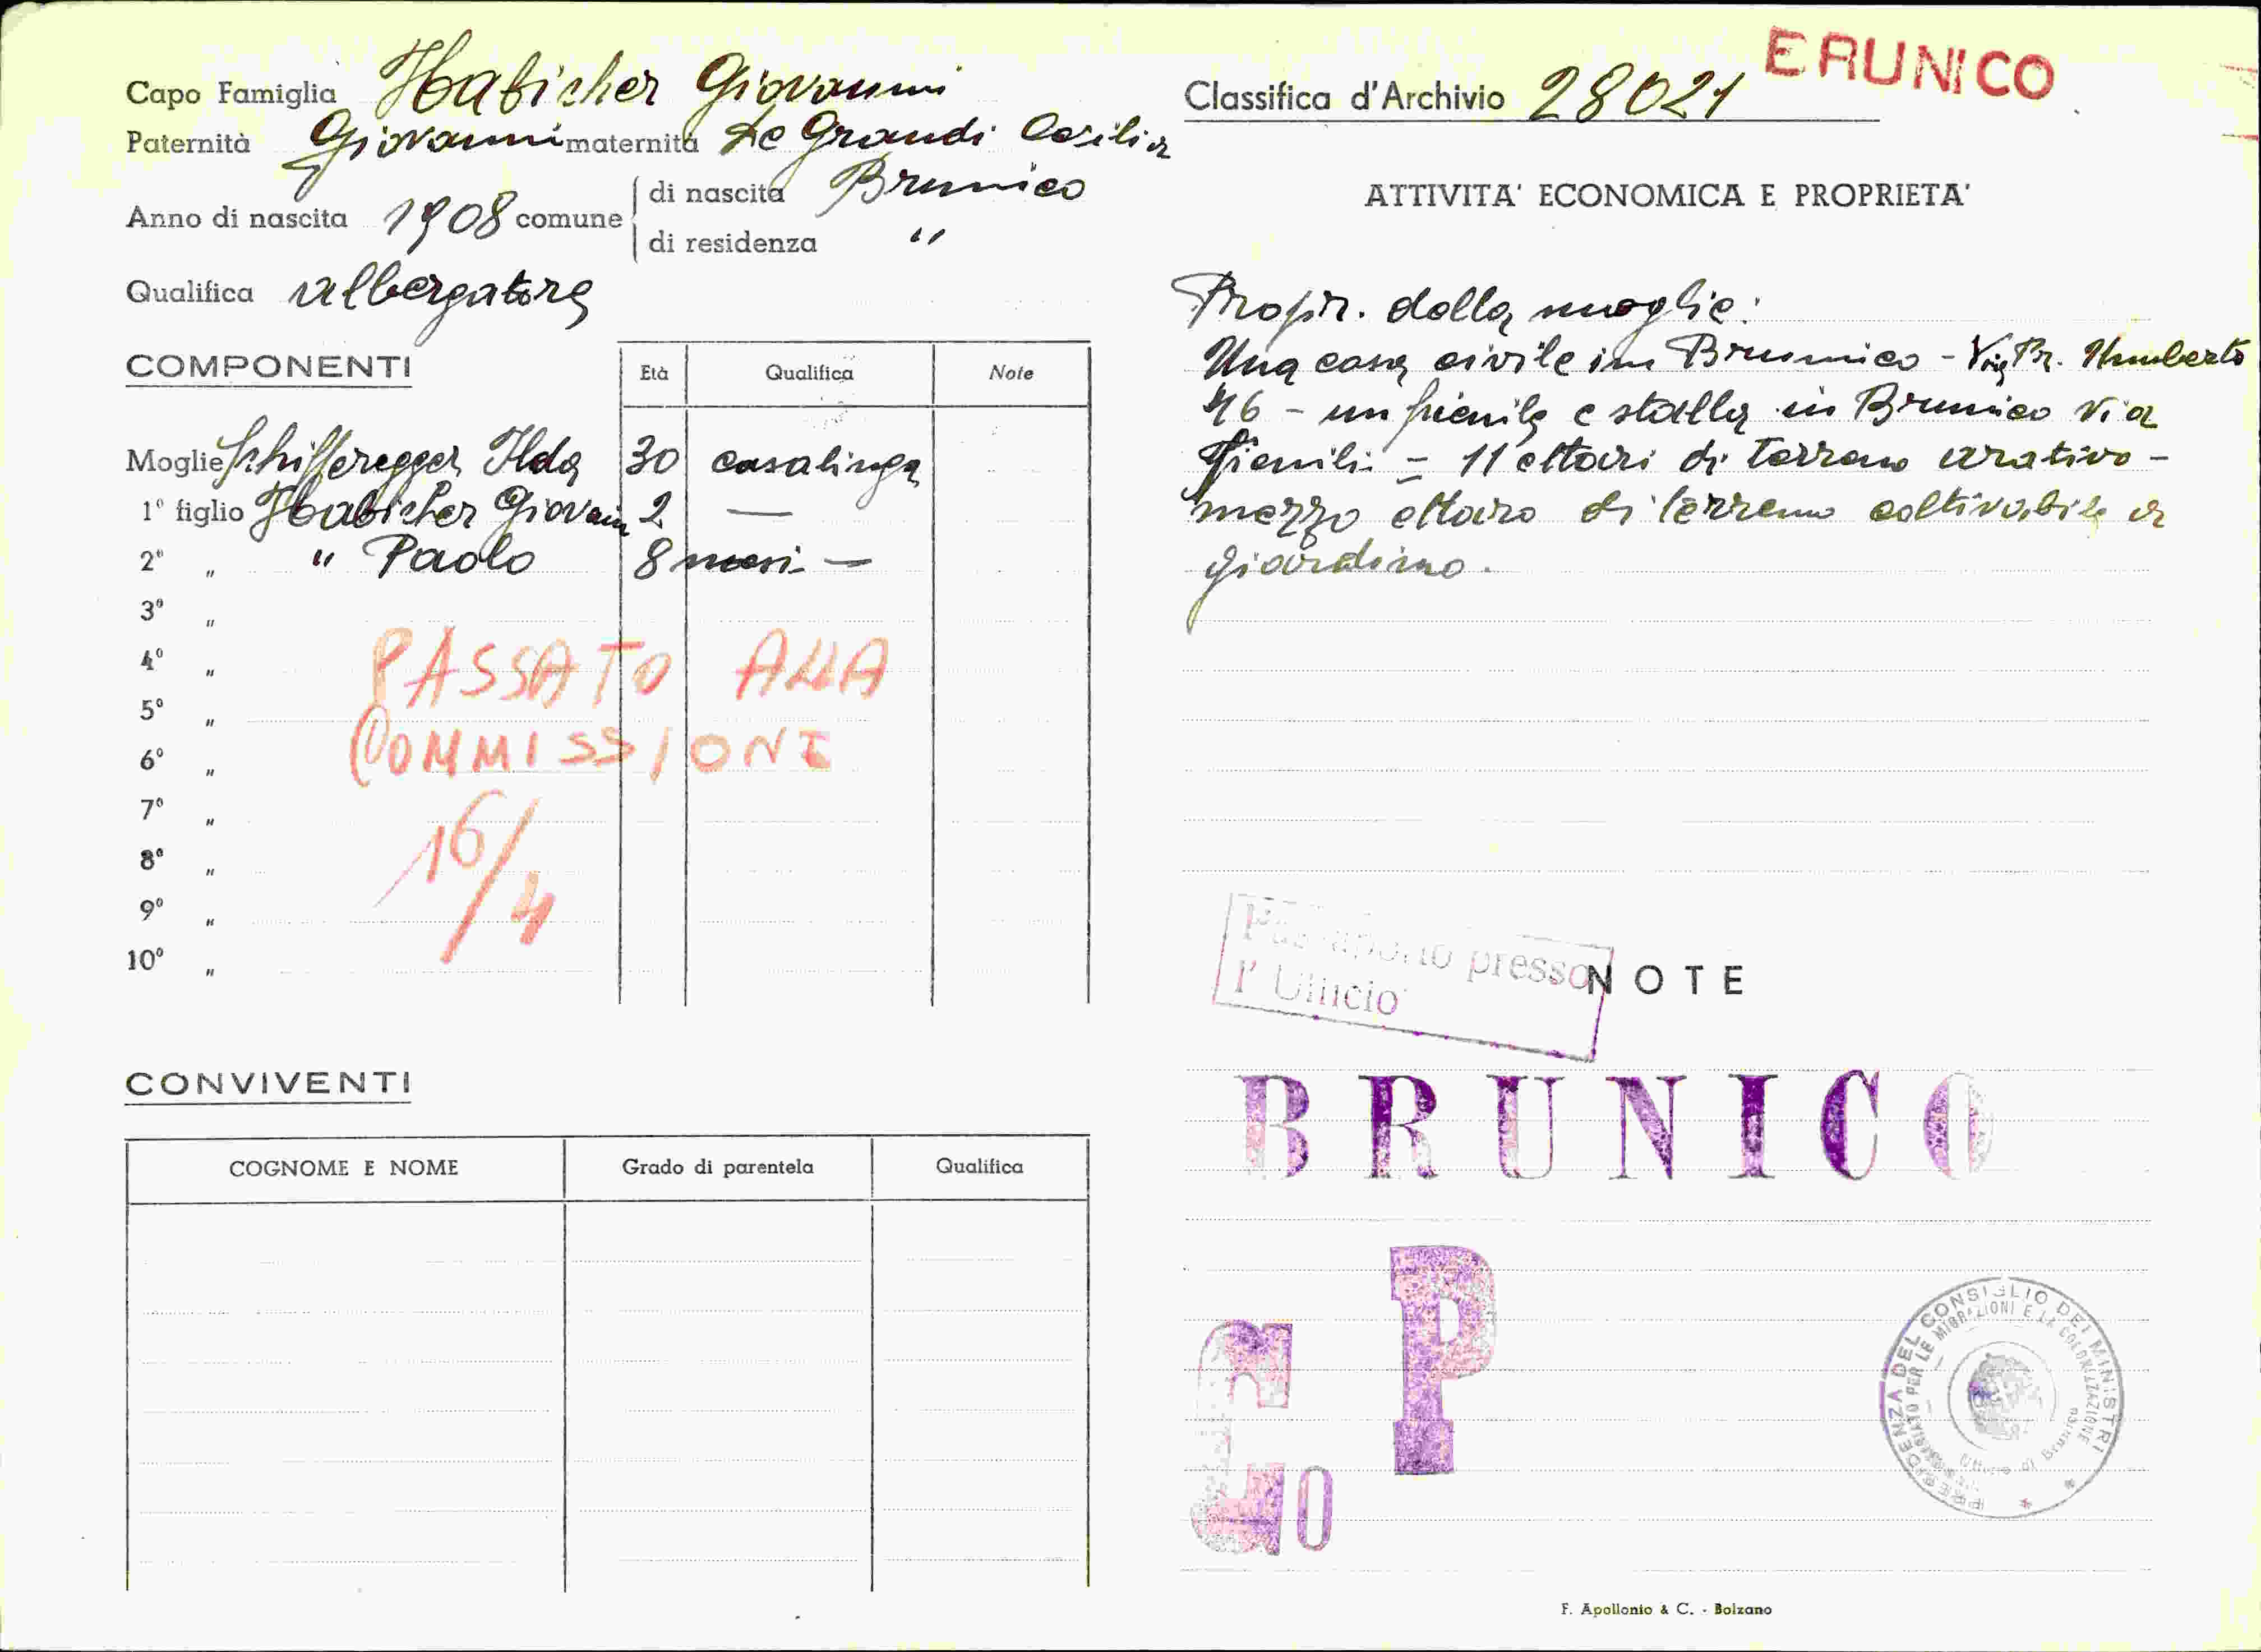 Capo Famiglia Habicher Giovanni
Paternità Giovanni maternità De Grandi Cecilia
Anno di nascita 1908 comune di nascita Brunico
di residenza "
Qualifica albergatore
COMPONENTI Età Qualifica Note
Moglie Schifferegger Ilda 30 casalinga
1° figlio Habicher Giovanni 2 —
2° " " Paolo 8 mesi —
3° "
4° "
5° "
6° "
7° "
8° "
9° "
10° "
PASSATO ALLA
COMMISSIONE
16/4
CONVIVENTI
COGNOME E NOME Grado di parentela Qualifica
Classifica d'Archivio 28021 BRUNICO
ATTIVITA' ECONOMICA E PROPRIETA'
Propr. della moglie:
Una casa civile in Brunico - Via Pr. Umberto
46 - un fienile e stalla in Brunico Via
Fienili - 11 ettari di terreno arativo -
mezzo ettaro di terreno coltivabile a
giardino.
presso
l'Ufficio
NOTE
BRUNICO
P
10
PRESIDENZA DEL CONSIGLIO DEI MINISTRI
PER LE MIGRAZIONI E LA COLONIZZAZIONE
di Brunico
F. Apollonio & C. - Bolzano